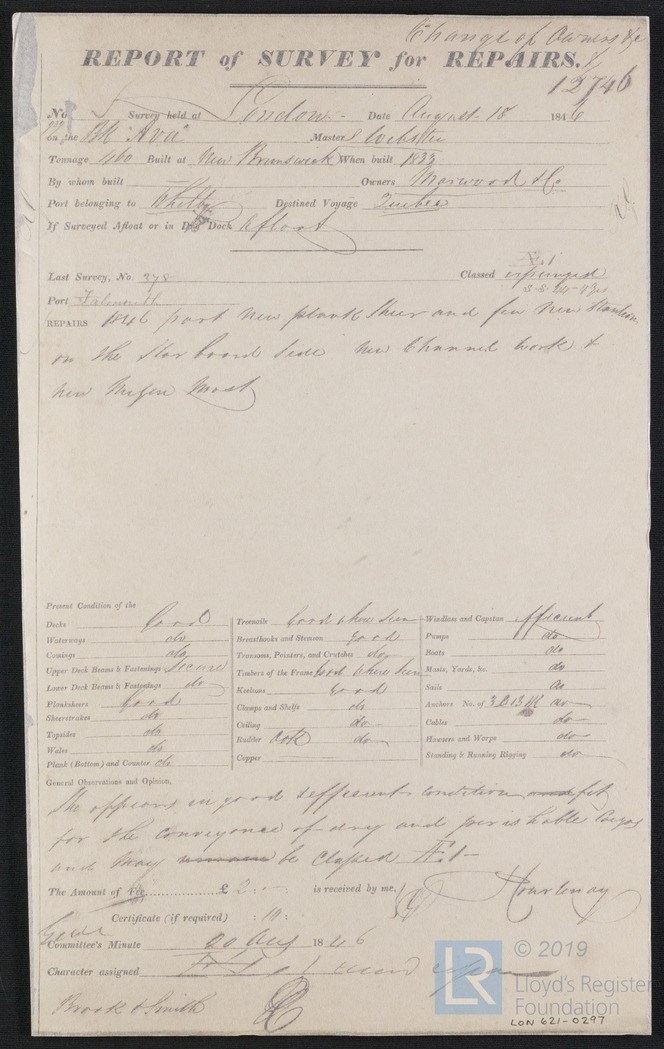 Change of Owners &c
REPORT of SURVEY for REPAIRS.
12746
No. Survey held at London Date August 18 1846
on the "Ava" Master Webster
Tonnage 460 Built at New Brunswick When built 1833
By whom built Owners Marwood & Co
Port belonging to Whitby Destined Voyage Quebec
If Surveyed Afloat or in Dry Dock Afloat
Last Survey, No. 378 Classed Æ1 expunged
Port Falmouth
REPAIRS 1846 part new plank sheer and few new stanchions
on the Starboard Side new Channel work &
new Mizen Mast
Present Condition of the
Decks Good
Waterways do
Comings do
Upper Deck Beams & Fastenings Secure
Lower Deck Beams & Fastenings do
Planksheers Good
Sheerstrakes do
Topsides do
Wales do
Plank (Bottom) and Counter do
Treenails Good where seen
Breasthooks and Stemson Good
Transoms, Pointers, and Crutches do
Timbers of the Frame Good where seen
Keelsons Good
Clamps and Shelfs do
Ceiling do
Rudder do
Copper
Windlass and Capstan efficient
Pumps do
Boats do
Masts, Yards, &c. do
Sails do
Anchors No. of 3 B do
Cables do
Hawsers and Warps do
Standing & Running Rigging do
General Observations and Opinion.
She appears in good & efficient condition and fit
for the conveyance of dry and perishable Cargo
and may be Classed Æ1
The Amount of Fee £ 2 : - : is received by me,
Courtenay
Certificate (if required) : 10 :
Committee's Minute 20 Aug 1846
Character assigned
Brook & Smith
© 2019
LR
Lloyd's Register
Foundation
LON 621-0297